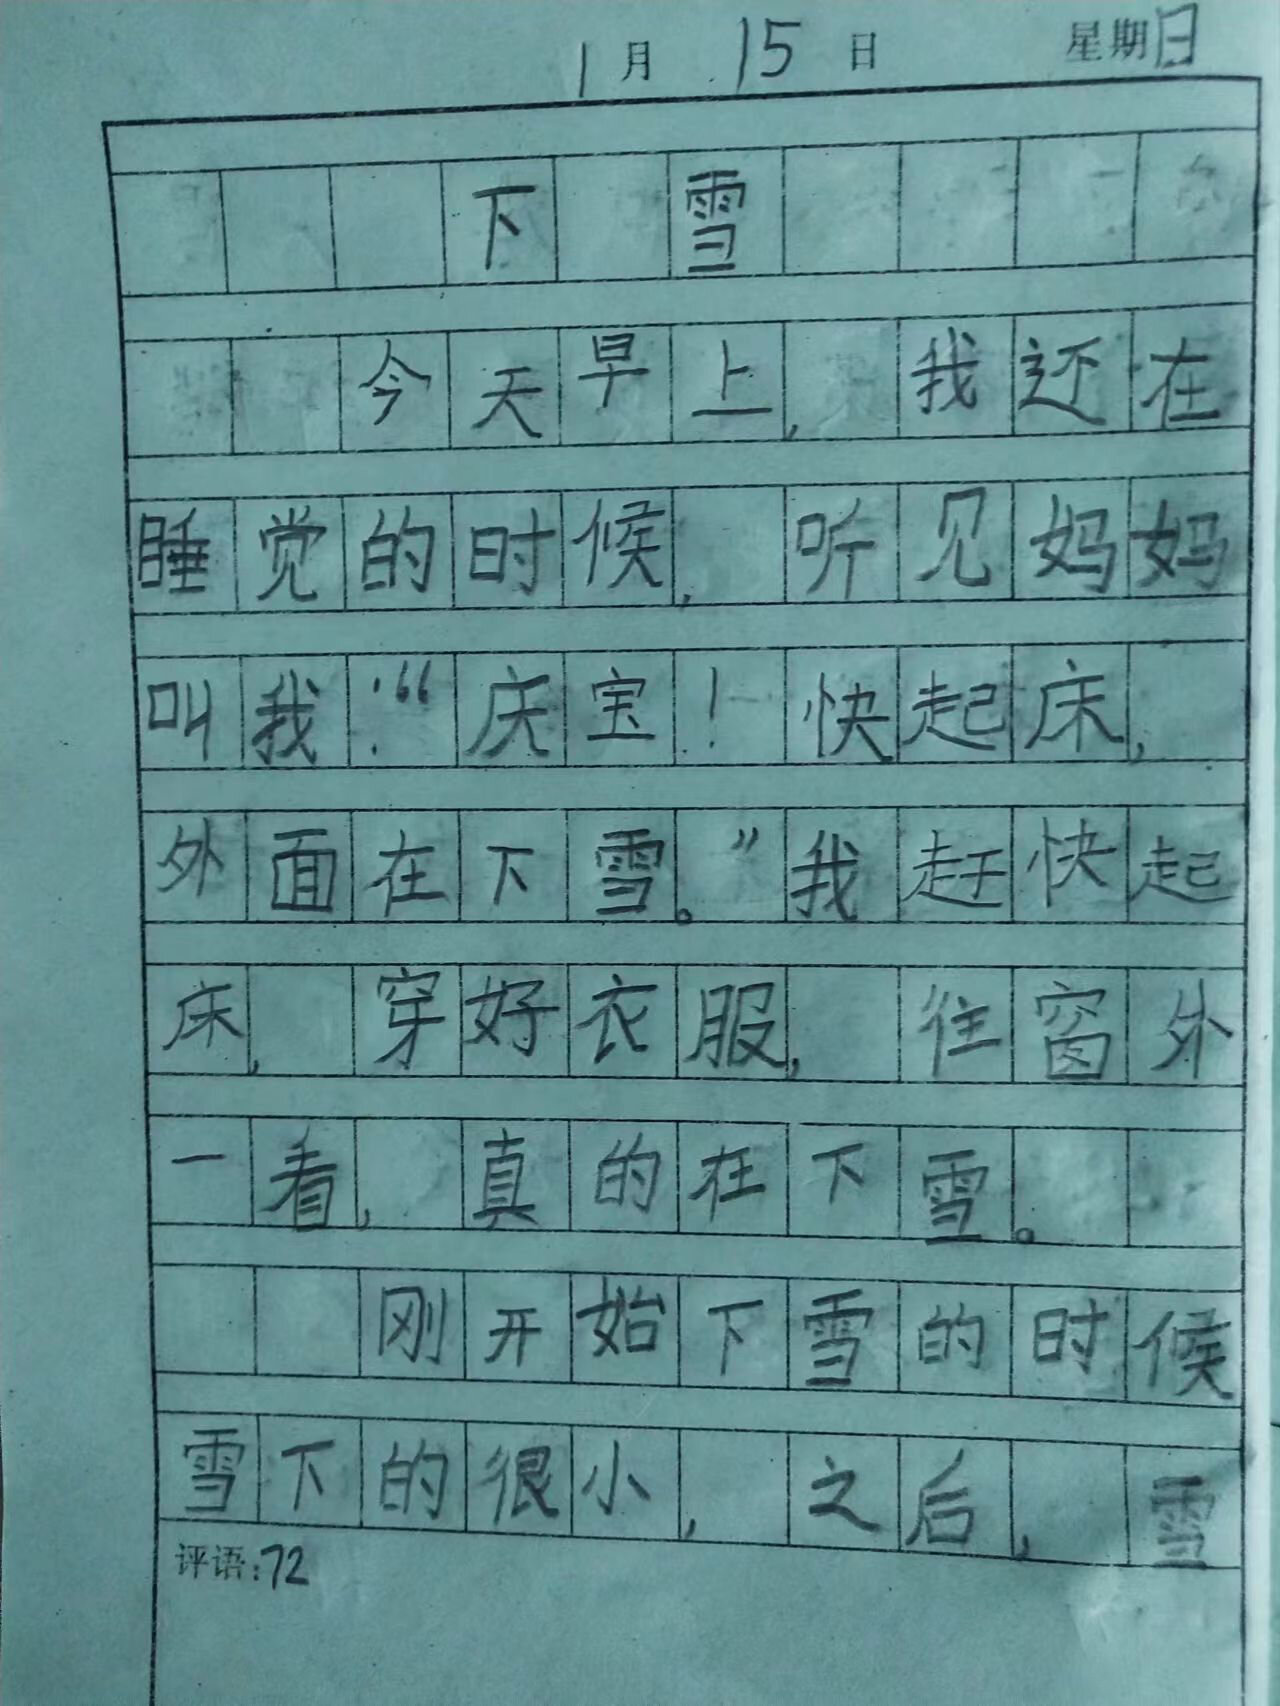 1月15日 星期日
下雪
今天早上,我还在
睡觉的时候,听见妈妈
叫我:“庆宝!快起床,
外面在下雪。”我赶快起
床,穿好衣服,往窗外
一看,真的在下雪。
刚开始下雪的时候
雪下的很小,之后,雪
评语:72